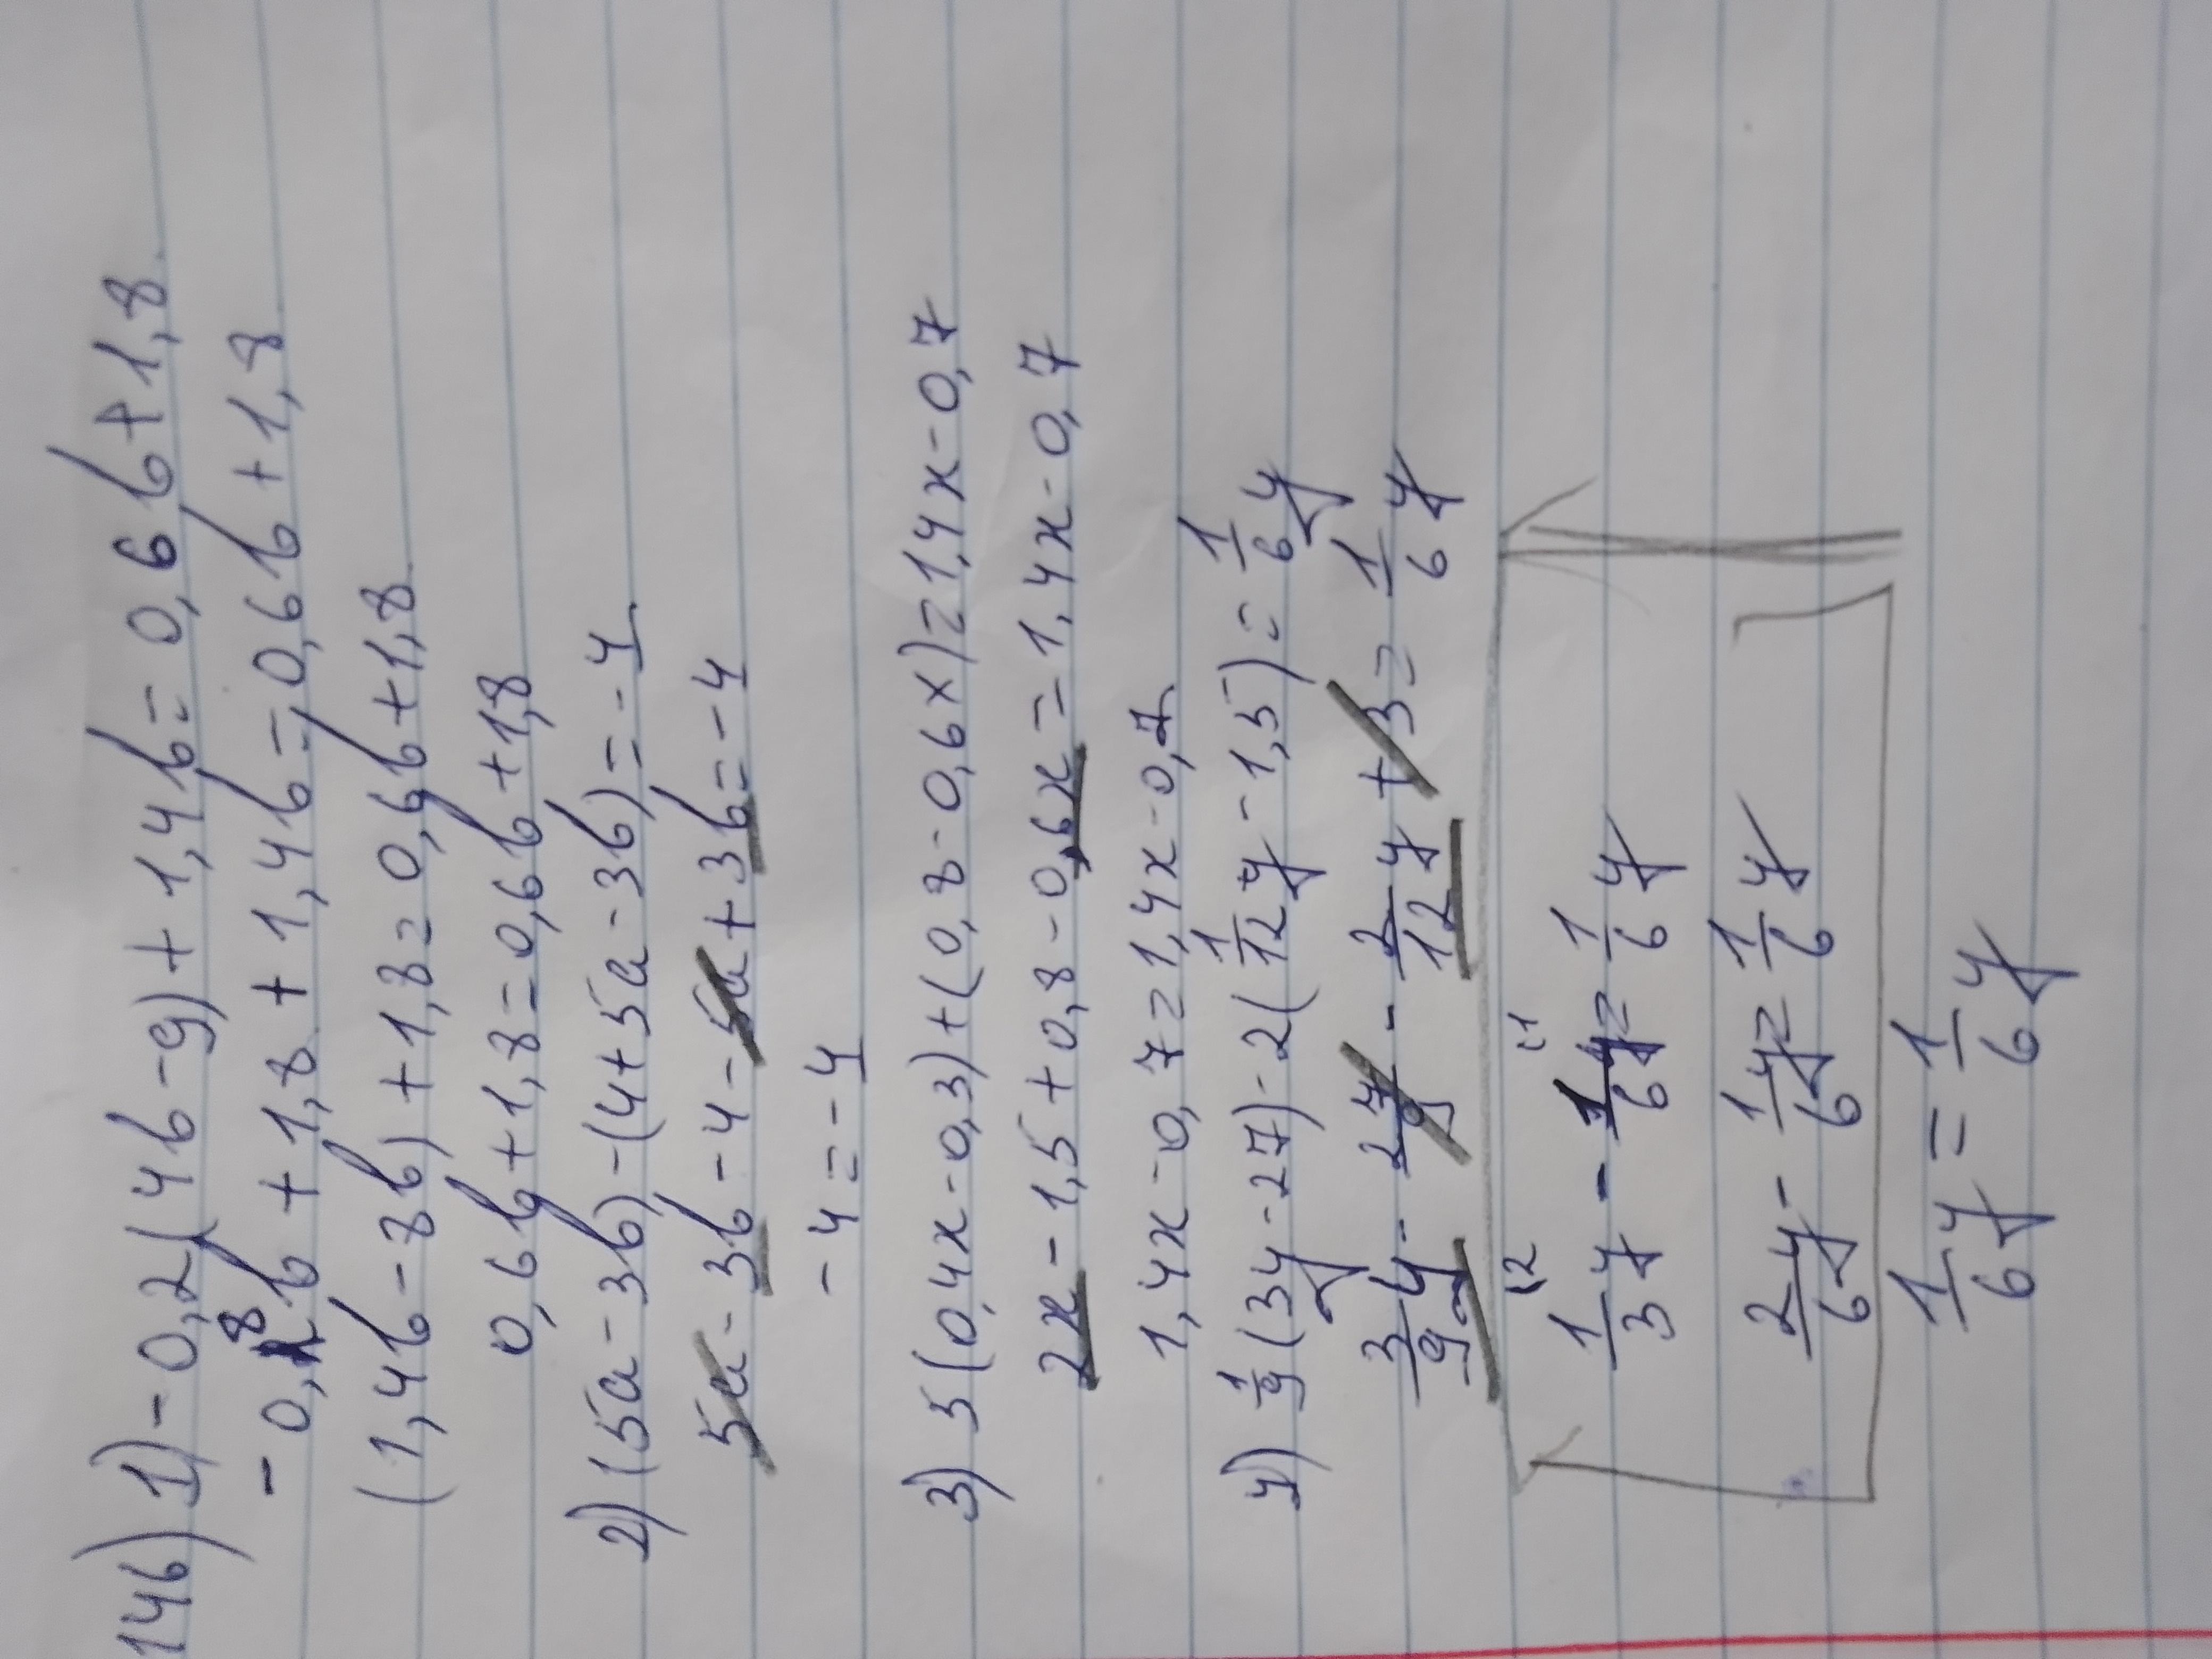 146) 1) -0,2(4b-9)+1,4b=0,6b+1,8
-0,8b+1,8+1,4b=0,6b+1,8
(1,4b-8b)+1,8=0,6b+1,8
0,6b+1,8=0,6b+1,8
2) (5a-3b)-(4+5a-3b)=-4
5a-3b-4-5a+3b=-4
-4=-4
3) 5(0,4x-0,3)+(0,8-0,6x)=1,4x-0,7
2x-1,5+0,8-0,6x=1,4x-0,7
1,4x-0,7=1,4x-0,7
4) 1/9(3y-27)-2(1/12y-1,5)=1/6y
3/9y-27/9-2/12y+3=1/6y
1/3y-1/6y=1/6y
2/6y-1/6y=1/6y
1/6y=1/6y